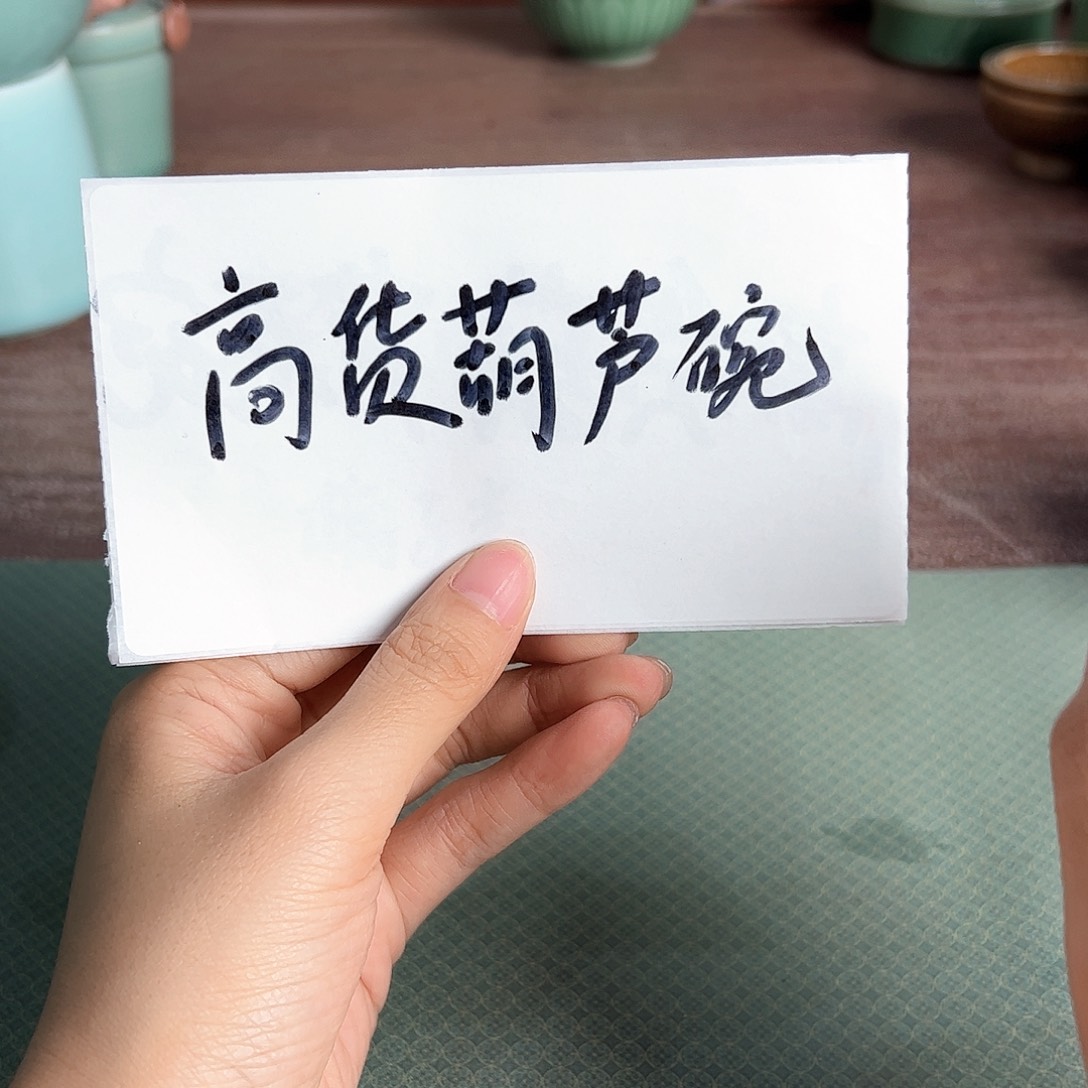 高货葫芦碗